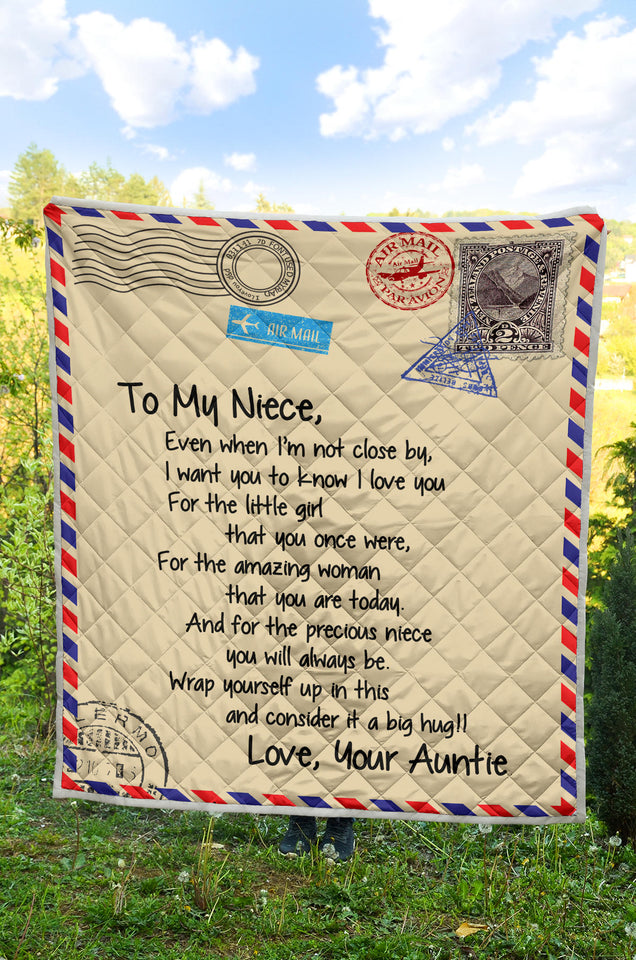 AIR MAIL
Air Mail
PAR AVION
AIR MAIL
2
TWO PENCE
To My Niece,
Even when I'm not close by,
I want you to know I love you
For the little girl
that you once were,
For the amazing woman
that you are today.
And for the precious niece
you will always be.
Wrap yourself up in this
and consider it a big hug!!
Love, Your Auntie
LERMO